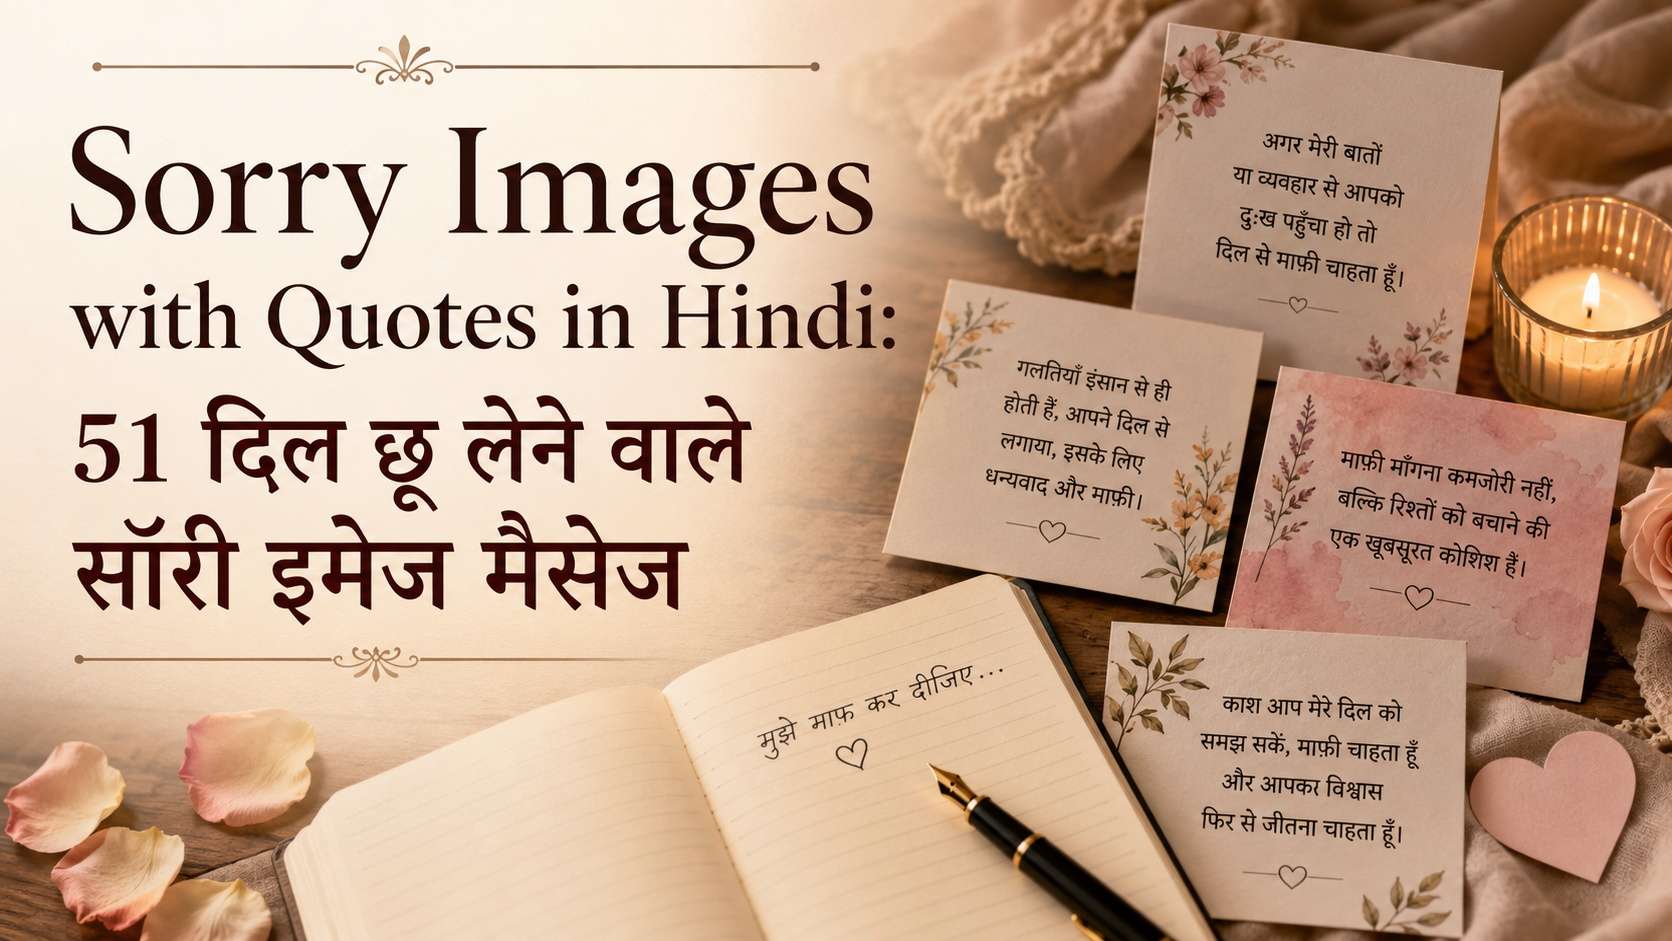 Sorry Images
with Quotes in Hindi:
51 दिल छू लेने वाले
सॉरी इमेज मैसेज
अगर मेरी बातों
या व्यवहार से आपको
दुःख पहुँचा हो तो
दिल से माफ़ी चाहता हूँ।
गलतियाँ इंसान से ही
होती हैं, आपने दिल से
लगाया, इसके लिए
धन्यवाद और माफ़ी।
माफ़ी माँगना कमजोरी नहीं,
बल्कि रिश्तों को बचाने की
एक खूबसूरत कोशिश हैं।
काश आप मेरे दिल को
समझ सकें, माफ़ी चाहता हूँ
और आपका विश्वास
फिर से जीतना चाहता हूँ।
मुझे माफ़ कर दीजिए...